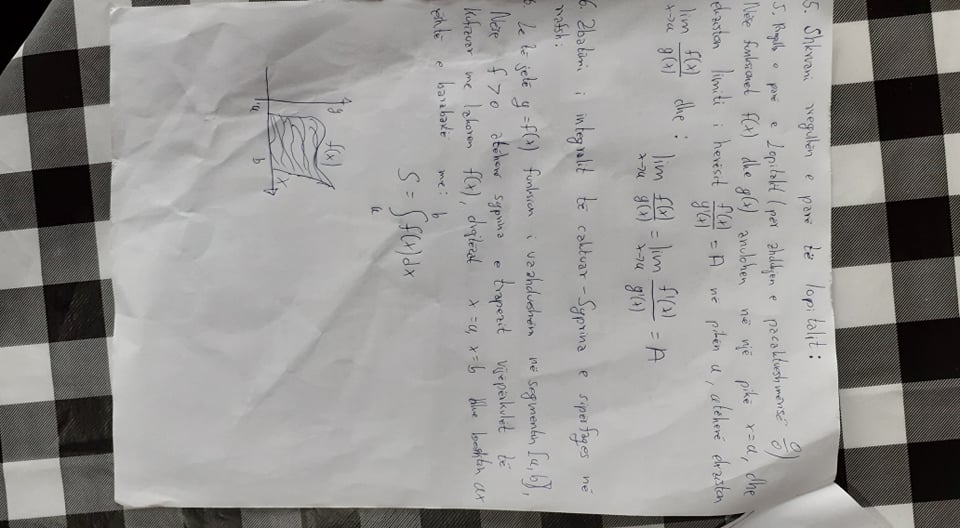 5. Shkruani rregullën e parë të lopitalit:
5. Rregulla e parë e Lopitalit (për zhdukjen e pacaktueshmërisë 0/0)
Nëse funksionet f(x) dhe g(x) anulohen në një pikë x=a, dhe
ekziston limiti i herësit f'(x)/g'(x) = A në pikën a, atëherë ekziston
lim x→a f(x)/g(x) dhe :
lim x→a f(x)/g(x) = lim x→a f'(x)/g'(x) = A
6. Zbatimi i integralit të caktuar - Syprina e sipërfaqes në
rrafsh:
6. Le të jetë y=f(x) funksion i vazhdueshëm në segmentin [a,b],
Nëse f>0 atëherë syprina e trapezit vijëpërkulët të
kufizuar me lakoren f(x), drejtëzat x=a, x=b dhe boshtin ox
është e barabartë me:
S = ∫ₐᵇ f(x)dx
y f(x)
x
a b